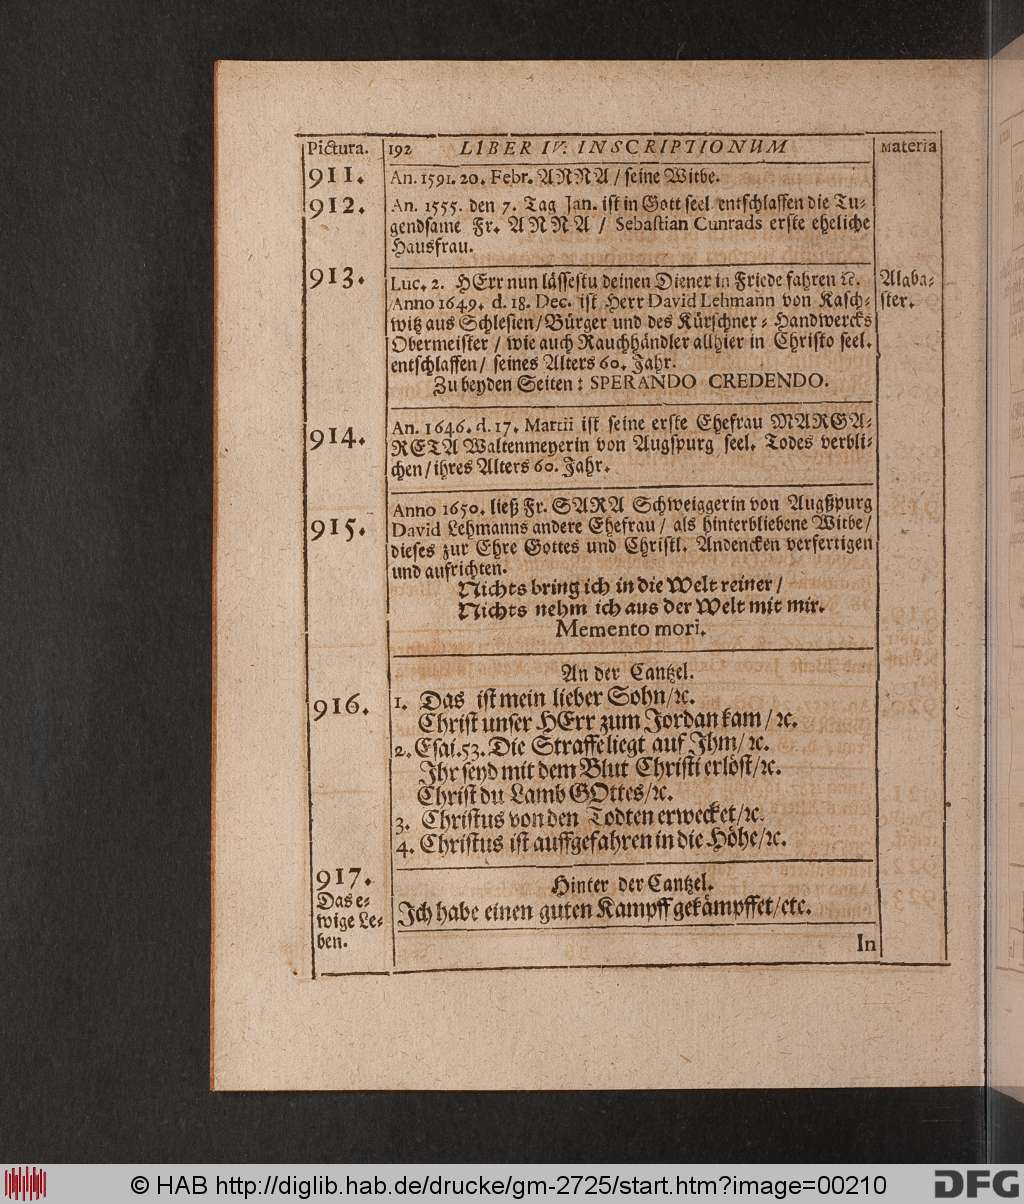 Pictura. 192 LIBER IV. INSCRIPTIONUM Materia
911. An. 1591. 20. Febr. ANNA / seine Witbe.
912. An. 1555. den 7. Tag Jan. ist in Gott seel entschlaffen die Tu-
gendsame Fr. ANNA / Sebastian Cunrads erste eheliche
Hausfrau.
913. Luc. 2. HErr nun lässestu deinen Diener in Friede fahren ꝛc. Alaba-
Anno 1649. d. 18. Dec. ist Herr David Lehmann von Kasch- ster.
witz aus Schlesien / Bürger und des Kürschner-Handwercks
Obermeister / wie auch Rauchhändler allhier in Christo seel.
entschlaffen / seines Alters 60. Jahr.
Zu beyden Seiten: SPERANDO CREDENDO.
914. An. 1646. d. 17. Martii ist seine erste Ehefrau MARGA-
RETA Waltenmeyerin von Augspurg seel. Todes verbli-
chen / ihres Alters 60. Jahr.
915. Anno 1650. ließ Fr. SARA Schweiggerin von Augßpurg
David Lehmanns andere Ehefrau / als hinterbliebene Witbe /
dieses zur Ehre Gottes und Christl. Andencken verfertigen
und aufrichten.
Nichts bring ich in die Welt reiner /
Nichts nehm ich aus der Welt mit mir.
Memento mori.
An der Cantzel.
916. 1. Das ist mein lieber Sohn / ꝛc.
Christ unser HErr zum Jordan kam / ꝛc.
2. Esai. 53. Die Straffe liegt auf Ihm / ꝛc.
Ihr seyd mit dem Blut Christi erlöst / ꝛc.
Christ du Lamb GOttes / ꝛc.
3. Christus von den Todten erwecket / ꝛc.
4. Christus ist auffgefahren in die Höhe / ꝛc.
917. Hinter der Cantzel.
Das e-
wige Le-
ben.
Ich habe einen guten Kampff gekämpffet / etc.
In
© HAB http://diglib.hab.de/drucke/gm-2725/start.htm?image=00210
DFG